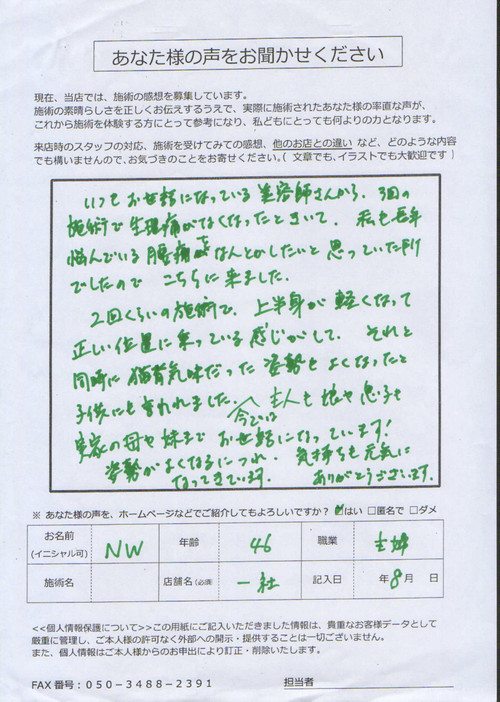 あなた様の声をお聞かせください
現在、当店では、施術の感想を募集しています。
施術の素晴らしさを正しくお伝えするうえで、実際に施術されたあなた様の率直な声が、
これから施術を体験する方にとって参考になり、私どもにとっても何よりの力となります。
来店時のスタッフの対応、施術を受けてみての感想、他のお店との違い など、どのような内容
でも構いませんので、お気づきのことをお寄せください。( 文章でも、イラストでも大歓迎です )
いつもお世話になっている美容師さんから、3回の
施術で生理痛がなくなったときいて、私も長年
悩んでいる腰痛をなんとかしたいと思っていた所
でしたので こちらに来ました。
2回くらいの施術で、上半身が軽くなって
正しい位置に乗っている感じがして、それと
同時に猫背気味だった姿勢もよくなったと
子供にも言われました。今では主人も娘や息子も
実家の母や妹まで お世話になっています!
姿勢がよくなるにつれ、気持ちも元気に
なってきています。 ありがとうございます。
※ あなた様の声を、ホームページなどでご紹介してもよろしいですか? ☑はい □匿名で □ダメ
お名前 (イニシャル可) NW 年齢 46 職業 主婦
施術名 店舗名(必須) 一社 記入日 年 8月 日
<<個人情報保護について>>この用紙にご記入いただきました情報は、貴重なお客様データとして
厳重に管理し、ご本人様の許可なく外部への開示・提供することは一切ございません。
また、個人情報はご本人様からのお申出により訂正・削除いたします。
FAX 番号：050－3488－2391 担当者